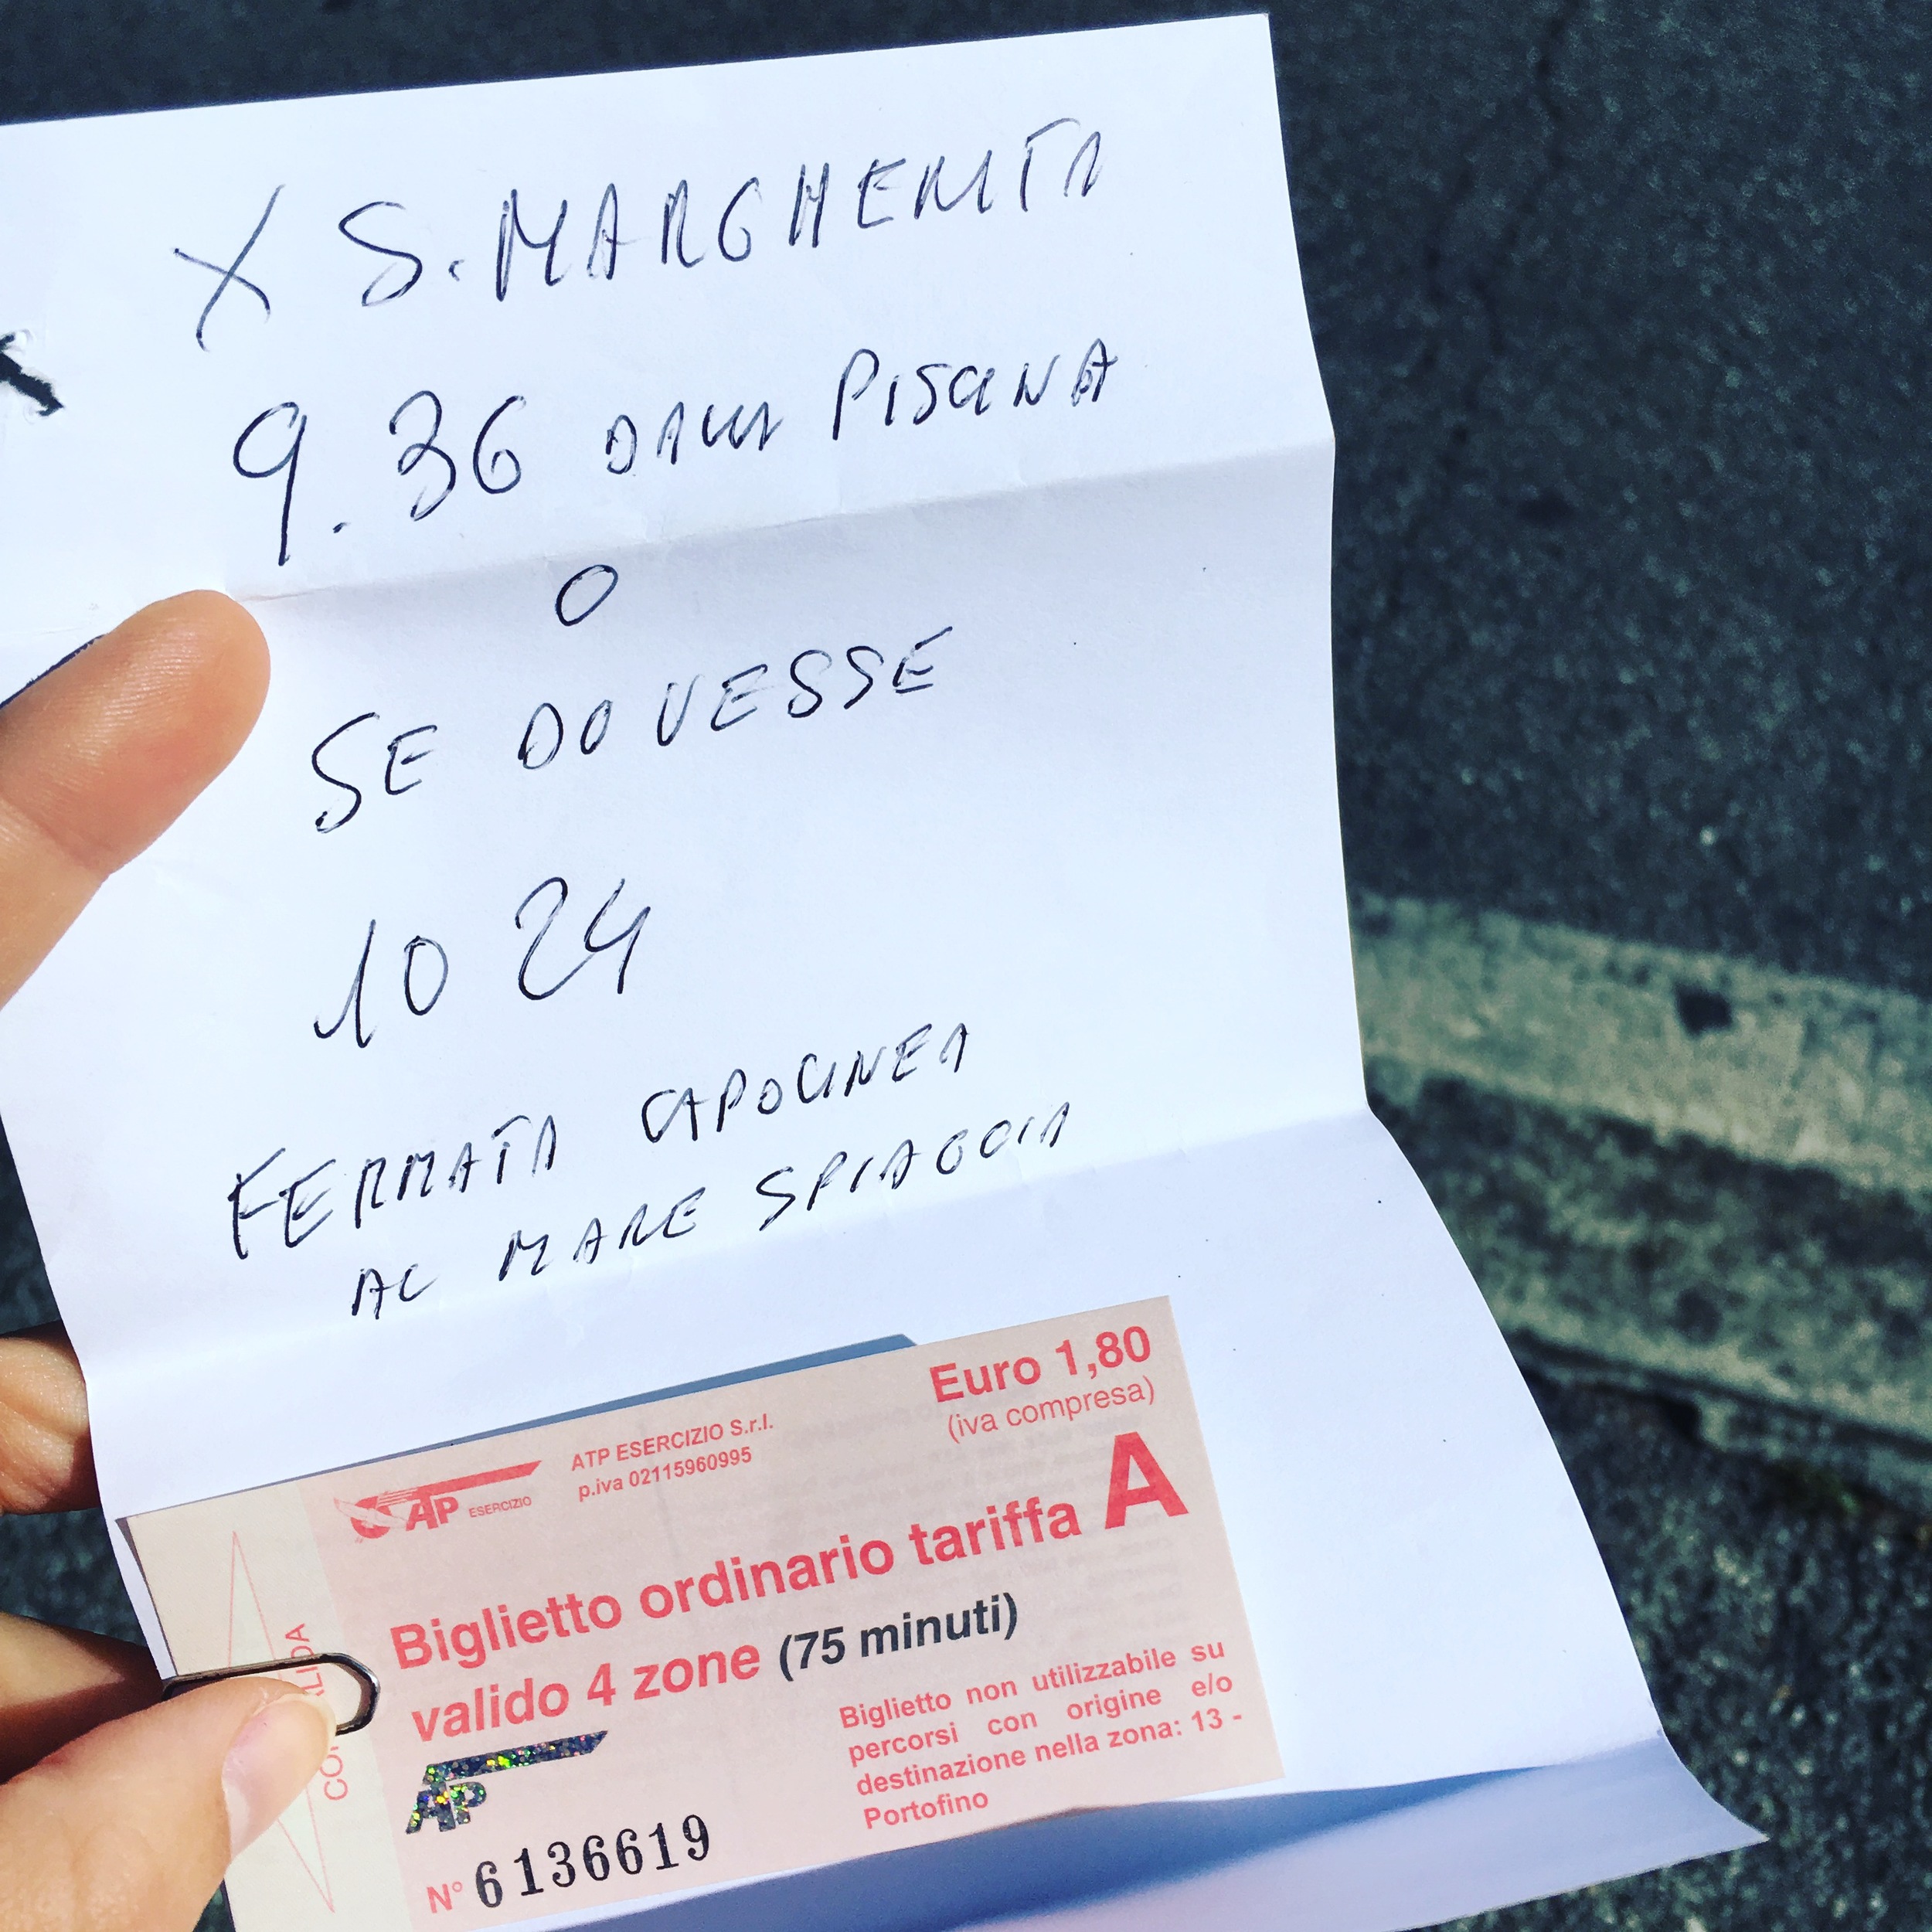 X S. MARGHERITA
9.36 DALLA PISCINA
O
SE DOVESSE
10 24
FERMATA CAPOLINEA
AL MARE SPIAGGIA
Euro 1,80
(iva compresa)
ATP ESERCIZIO S.r.l.
p.iva 02115960995
ATP ESERCIZIO
Biglietto ordinario tariffa A
valido 4 zone (75 minuti)
Biglietto non utilizzabile su
percorsi con origine e/o
destinazione nella zona: 13 -
Portofino
ATP
N° 6136619